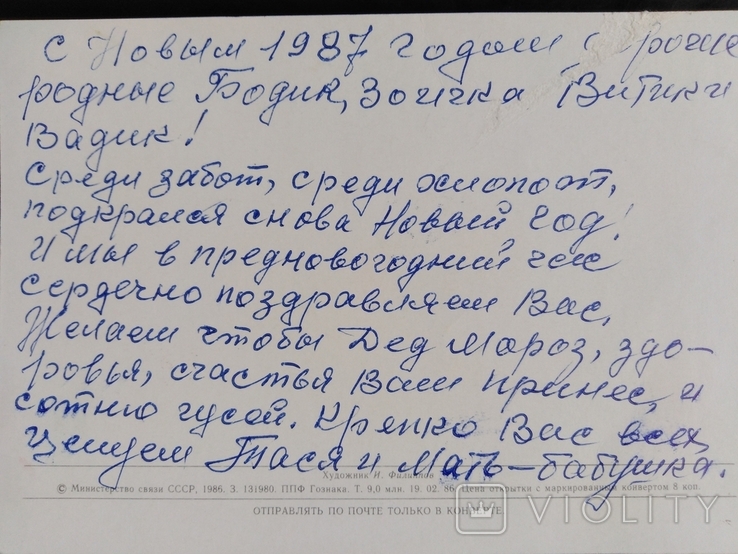 С Новым 1987 годом
родные Бодик, Зоичка Витик и
Вадик!
Среди забот, среди хлопот,
подкрался снова Новый год!
И мы в предновогодний час
сердечно поздравляем Вас,
Желаем чтобы Дед Мороз, здо-
ровья, счастья Вам принес, и
сотню гусей. Крепко Вас всех
целуем Тася и Мать-бабушка.
Художник И. Филиппов
© Министерство связи СССР, 1986. З. 131980. ППФ Гознака. Т. 9,0 млн. 19. 02. 86. Цена открытки с маркированным конвертом 8 коп.
ОТПРАВЛЯТЬ ПО ПОЧТЕ ТОЛЬКО В КОНВЕРТЕ
VIOLITY